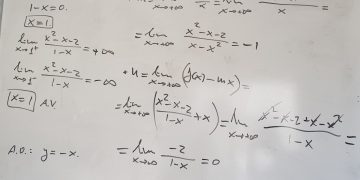 1-x=0.
x=1
lim x→1⁺ x²-x-2 / 1-x = +∞
lim x→1⁻ x²-x-2 / 1-x = -∞
x=1 A.V.
A.O.: y=-x.
x =
= lim x→+∞ x²-x-2 / x-x² = -1
n = lim x→+∞ (f(x)-mx) =
= lim x→+∞ (x²-x-2 / 1-x + x) = lim x→+∞ x²-x-2+x-x² / 1-x =
= lim x→+∞ -2 / 1-x = 0